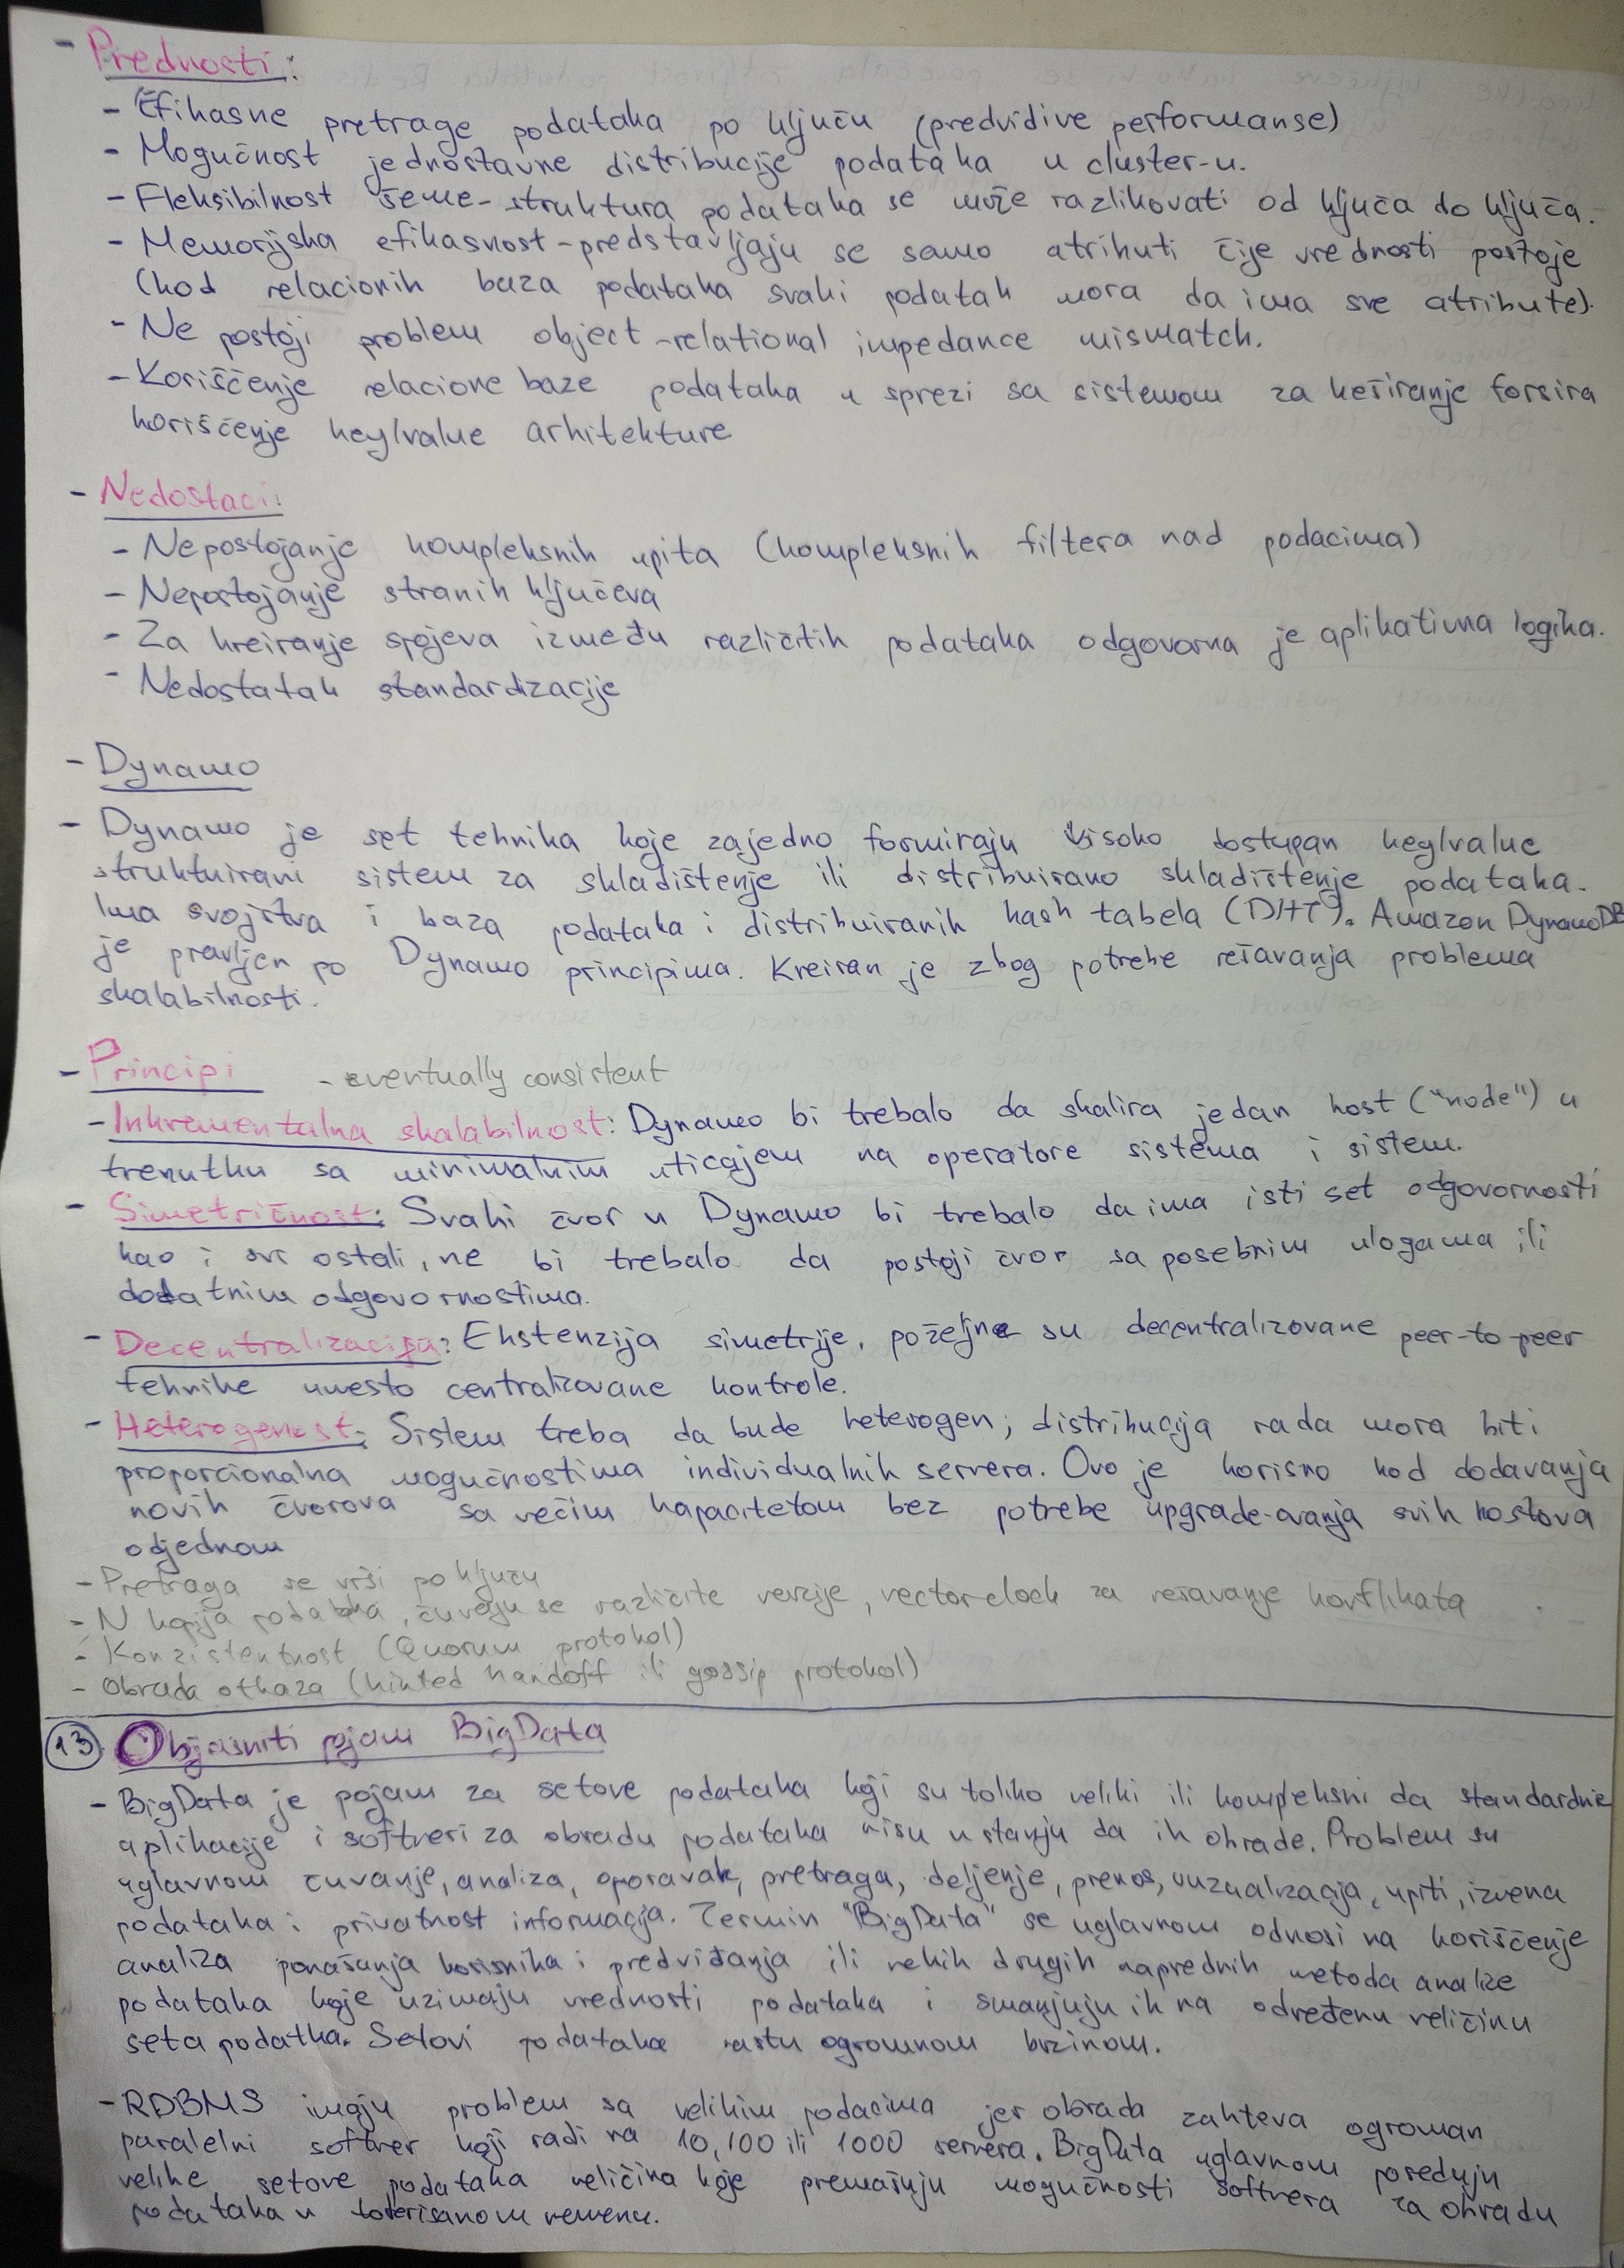 - Prednosti:
- Efikasne pretrage podataka po ključu (predvidive performanse)
- Mogućnost jednostavne distribucije podataka u cluster-u.
- Fleksibilnost šeme - struktura podataka se može razlikovati od ključa do ključa.
- Memorijska efikasnost - predstavljaju se samo atributi čije vrednosti postoje
(kod relacionih baza podataka svaki podatak mora da ima sve atribute).
- Ne postoji problem object-relational impedance mismatch.
- Korišćenje relacione baze podataka u sprezi sa sistemom za keširanje forsira
korišćenje key/value arhitekture
- Nedostaci:
- Nepostojanje kompleksnih upita (kompleksnih filtera nad podacima)
- Nepostojanje stranih ključeva
- Za kreiranje spojeva između različitih podataka odgovorna je aplikativna logika.
- Nedostatak standardizacije
- Dynamo
- Dynamo je set tehnika koje zajedno formiraju visoko dostupan key/value
strukturirani sistem za skladištenje ili distribuirano skladištenje podataka.
Ima svojstva i baza podataka i distribuiranih hash tabela (DHT). Amazon DynamoDB
je pravljen po Dynamo principima. Kreiran je zbog potrebe rešavanja problema
skalabilnosti.
- Principi - eventually consistent
- Inkrementalna skalabilnost: Dynamo bi trebalo da skalira jedan host ("node") u
trenutku sa minimalnim uticajem na operatore sistema i sistem.
- Simetričnost: Svaki čvor u Dynamo bi trebalo da ima isti set odgovornosti
kao i svi ostali, ne bi trebalo da postoji čvor sa posebnim ulogama ili
dodatnim odgovornostima.
- Decentralizacija: Ekstenzija simetrije, poželjne su decentralizovane peer-to-peer
tehnike umesto centralizovane kontrole.
- Heterogenost: Sistem treba da bude heterogen; distribucija rada mora biti
proporcionalna mogućnostima individualnih servera. Ovo je korisno kod dodavanja
novih čvorova sa većim kapacitetom bez potrebe upgrade-ovanja svih hostova
odjednom
- Pretraga se vrši po ključu
- N kopija podataka, čuvaju se različite verzije, vector clock za rešavanje konflikata
- Konzistentnost (Quorum protokol)
- Obrada otkaza (hinted handoff ili gossip protokol)
13 Objasniti pojam BigData
- BigData je pojam za setove podataka koji su toliko veliki ili kompleksni da standardne
aplikacije i softveri za obradu podataka nisu u stanju da ih obrade. Problem su
uglavnom čuvanje, analiza, oporavak, pretraga, deljenje, prenos, vizualizacija, upiti, izmena
podataka i privatnost informacija. Termin "BigData" se uglavnom odnosi na korišćenje
analiza ponašanja korisnika i predviđanja ili nekih drugih naprednih metoda analize
podataka koje uzimaju vrednosti podataka i smanjuju ih na određenu veličinu
seta podatka. Setovi podataka rastu ogromnom brzinom.
- RDBMS imaju problem sa velikim podacima jer obrada zahteva ogroman
paralelni softver koji radi na 10, 100 ili 1000 servera. BigData uglavnom poseduju
velike setove podataka veličina koje premašuju mogućnosti softvera za obradu
podataka u tolerisanom vremenu.